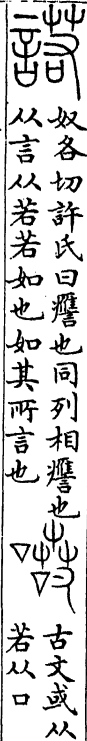 諾
奴各切許氏曰𧭭也同列相𧭭也
从言从若若如也如其所言也
古文或从
若从口